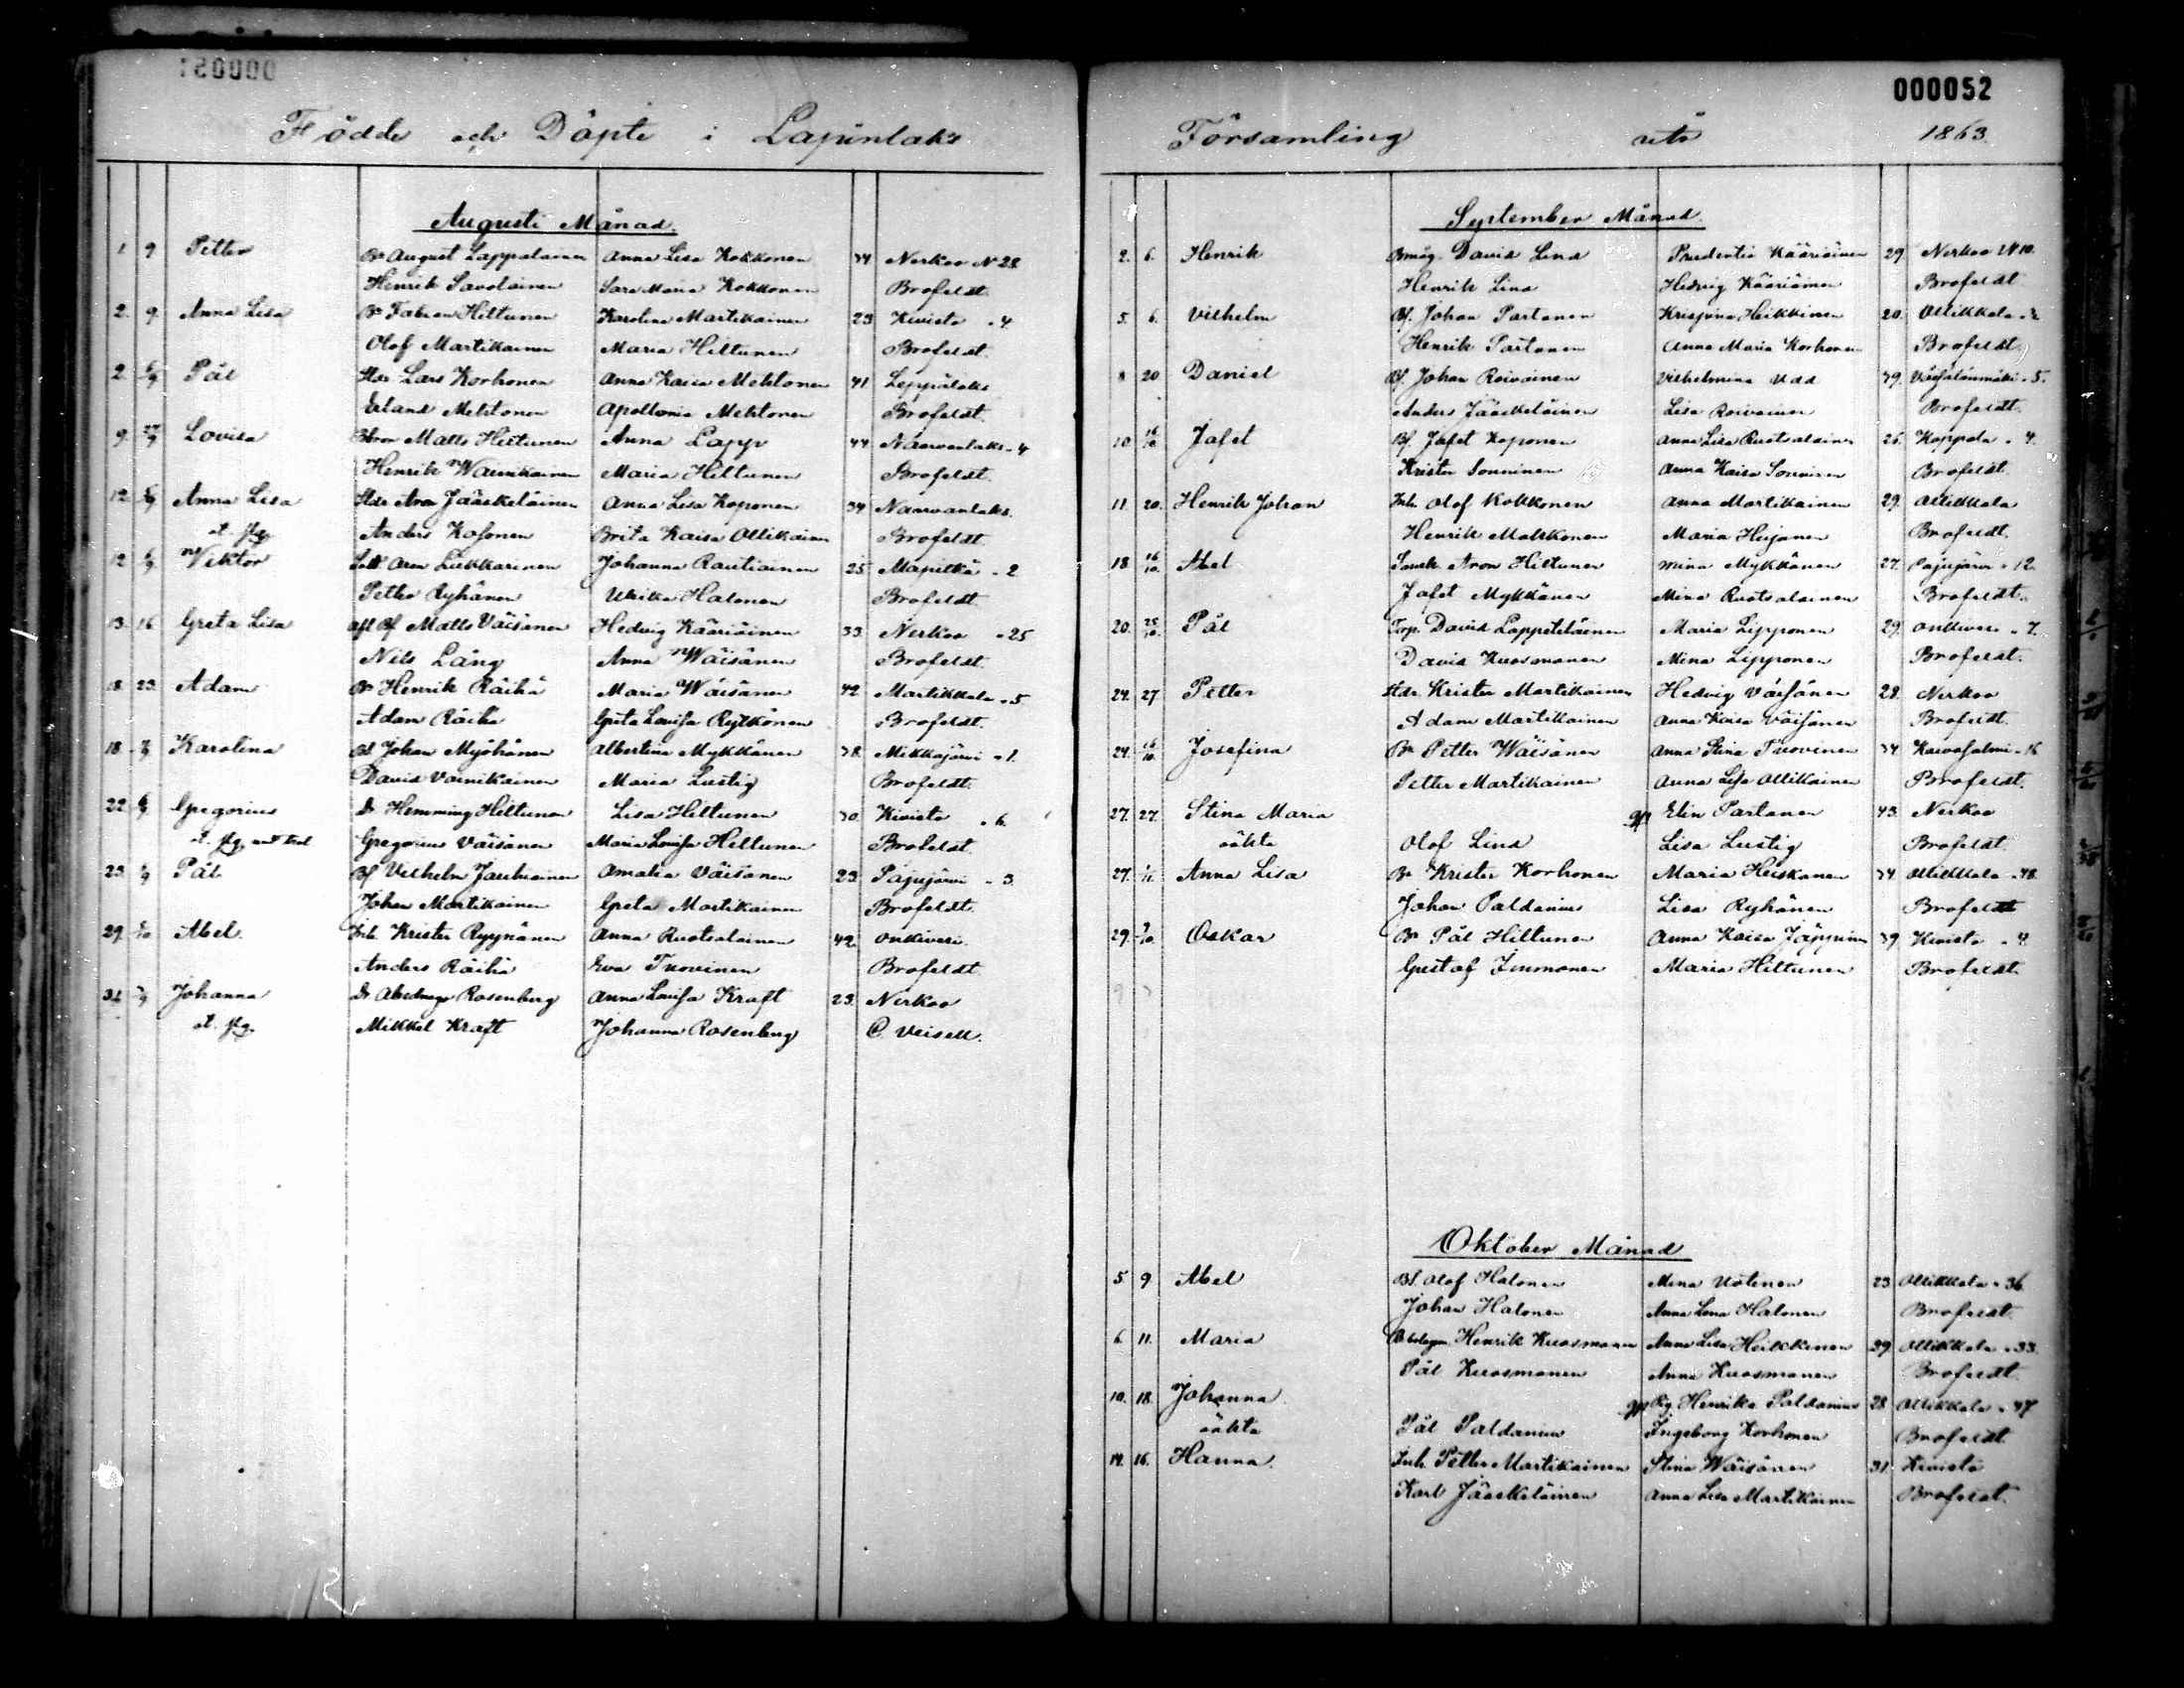 000051
Födde och Döpte i Lapinlaks
Augusti Månad.
1 9 Petter Br August Lappalainen Anna Lisa Kokkonen 34 Nerkoo N 28
Henrik Savolainen Sara Maria Kokkonen Brofeldt.
2. 9. Anna Lisa Br Fabian Hiltunen Karolina Martikainen 23 Kivisto " 4
Olof Martikainen Maria Hiltunen Brofeldt.
2 6/9 Pål Hdr Lars Korhonen Anna Kaisa Mehtonen 41 Leppälaks
Erland Mehtonen Apollonia Mehtonen Brofeldt.
9. 27/9 Lovisa Matts Hiltunen Anna Lapp 44 Naarvanlaks " 4
Henrik Wainikainen Maria Hiltunen Brofeldt.
12. 6/9 Anna Lisa Hdr Aron Jääskeläinen Anna Lisa Koponen 34 Naarvanlaks.
Anders Kosonen Brita Kaisa Ollikainen Brofeldt.
12 6/9 Viktor Aron Liukkarinen Johanna Rautiainen 25 Mapilkä " 2
Petter Ryhänen Ulrika Halonen Brofeldt.
13. 16 Greta Lisa Bf Matts Väisänen Hedvig Kääriäinen 33. Nerkoo " 25
Nils Lång Anna Wäisänen Brofeldt.
18. 23. Adam Br Henrik Räihä Maria Wäisänen 42 Martikkala " 5
Adam Räihä Greta Lovisa Rytkönen Brofeldt.
18 Karolina Bf Johan Myöhänen Albertina Mykkänen 38 Mikkajärvi " 1.
David Vainikainen Maria Lustig Brofeldt.
22. 6/9 Gregorius Dr Hemming Hiltunen Lisa Hiltunen 30. Kivisto " 6.
Gregorius Väisänen Maria Lovisa Hiltunen Brofeldt.
23. Pål Bf Vilhelm Jauhiainen Amalia Väisänen 23 Pajujärvi " 3.
Johan Martikainen Greta Martikainen Brofeldt.
29. Abel Inh. Krister Ryynänen Anna Ruotsalainen 42. Onkivesi.
Anders Räihä Eva Tuovinen Brofeldt.
31. Johanna Dr Abednego Rosenberg Anna Lovisa Kraft 23. Nerkoo
Mikkel Kraft Johanna Rosenberg C. Veisell.
000052
Församling 1863.
September Månad.
2. 6. Henrik Bmåg. David Lind Prudentia Kääriäinen 29. Nerkoo N 10.
Henrik Lind Hedvig Kääriäinen Brofeldt
5. 6. Vilhelm Bf. Johan Partanen Krispina Heikkinen 20. Ollikkala
Henrik Partanen Anna Maria Korhonen Brofeldt
8 20 Daniel Bf. Johan Roivainen Vilhelmina Udd 39. Väisälänmäki " 5.
Anders Jääskeläinen Lisa Roivainen Brofeldt.
10. 16/10 Jafet Bf. Jafet Koponen Anna Lisa Ruotsalainen 26. Koppola " 4.
Krister Sonninen Anna Kaisa Sonninen Brofeldt.
11. 20. Henrik Johan Inh. Olof Kokkonen Anna Martikainen 29. Ollikkala
Henrik Makkonen Maria Hujanen Brofeldt.
18. 16/10. Abel Aron Hiltunen Mina Mykkänen 27. Pajujärvi " 12.
Jafet Mykkänen Mina Ruotsalainen Brofeldt.
20. 25/10. Pål Torp. David Lappeteläinen Maria Lipponen 29. Onkivesi " 7.
David Kuosmanen Mina Lipponen Brofeldt.
24. 27 Petter Hdr. Krister Martikainen Hedvig Väisänen 28. Nerkoo
Adam Martikainen Anna Kaisa Väisänen Brofeldt.
24. 16/10. Josefina Br Petter Wäisänen Anna Stina Tuovinen 34. Karvasalmi " 16
Petter Martikainen Anna Lisa Ollikainen Brofeldt.
27. 27. Stina Maria Elin Partanen 43. Nerkoo
oäkta Olof Lind Lisa Lustig Brofeldt.
27. 1/11. Anna Lisa Br Krister Korhonen Maria Heiskanen 34. Ollikkala " 48.
Johan Paldanius Lisa Ryhänen Brofeldt
29. 9/10. Oskar Br Pål Hiltunen Anna Kaisa Jäppinen 39 Kivisto " 4.
Gustaf Immonen Maria Hiltunen Brofeldt.
Oktober Månad
5 9. Abel Bf. Olof Halonen Mina Uotinen 23 Ollikkala " 36.
Johan Halonen Anna Lena Halonen Brofeldt.
6. 11. Maria Henrik Kuosmanen Anna Lisa Heikkinen 39. Ollikkala " 33.
Pål Kuosmanen Anna Kuosmanen Brofeldt.
10. 18. Johanna Pig. Henrika Paldanius 28 Ollikkala " 47
oäkta Pål Paldanius Ingeborg Korhonen Brofeldt.
14. 16. Hanna. Inh. Petter Martikainen Stina Wäisänen 31. Kivistö
Karl Jääskeläinen Anna Lisa Martikainen Brofeldt.